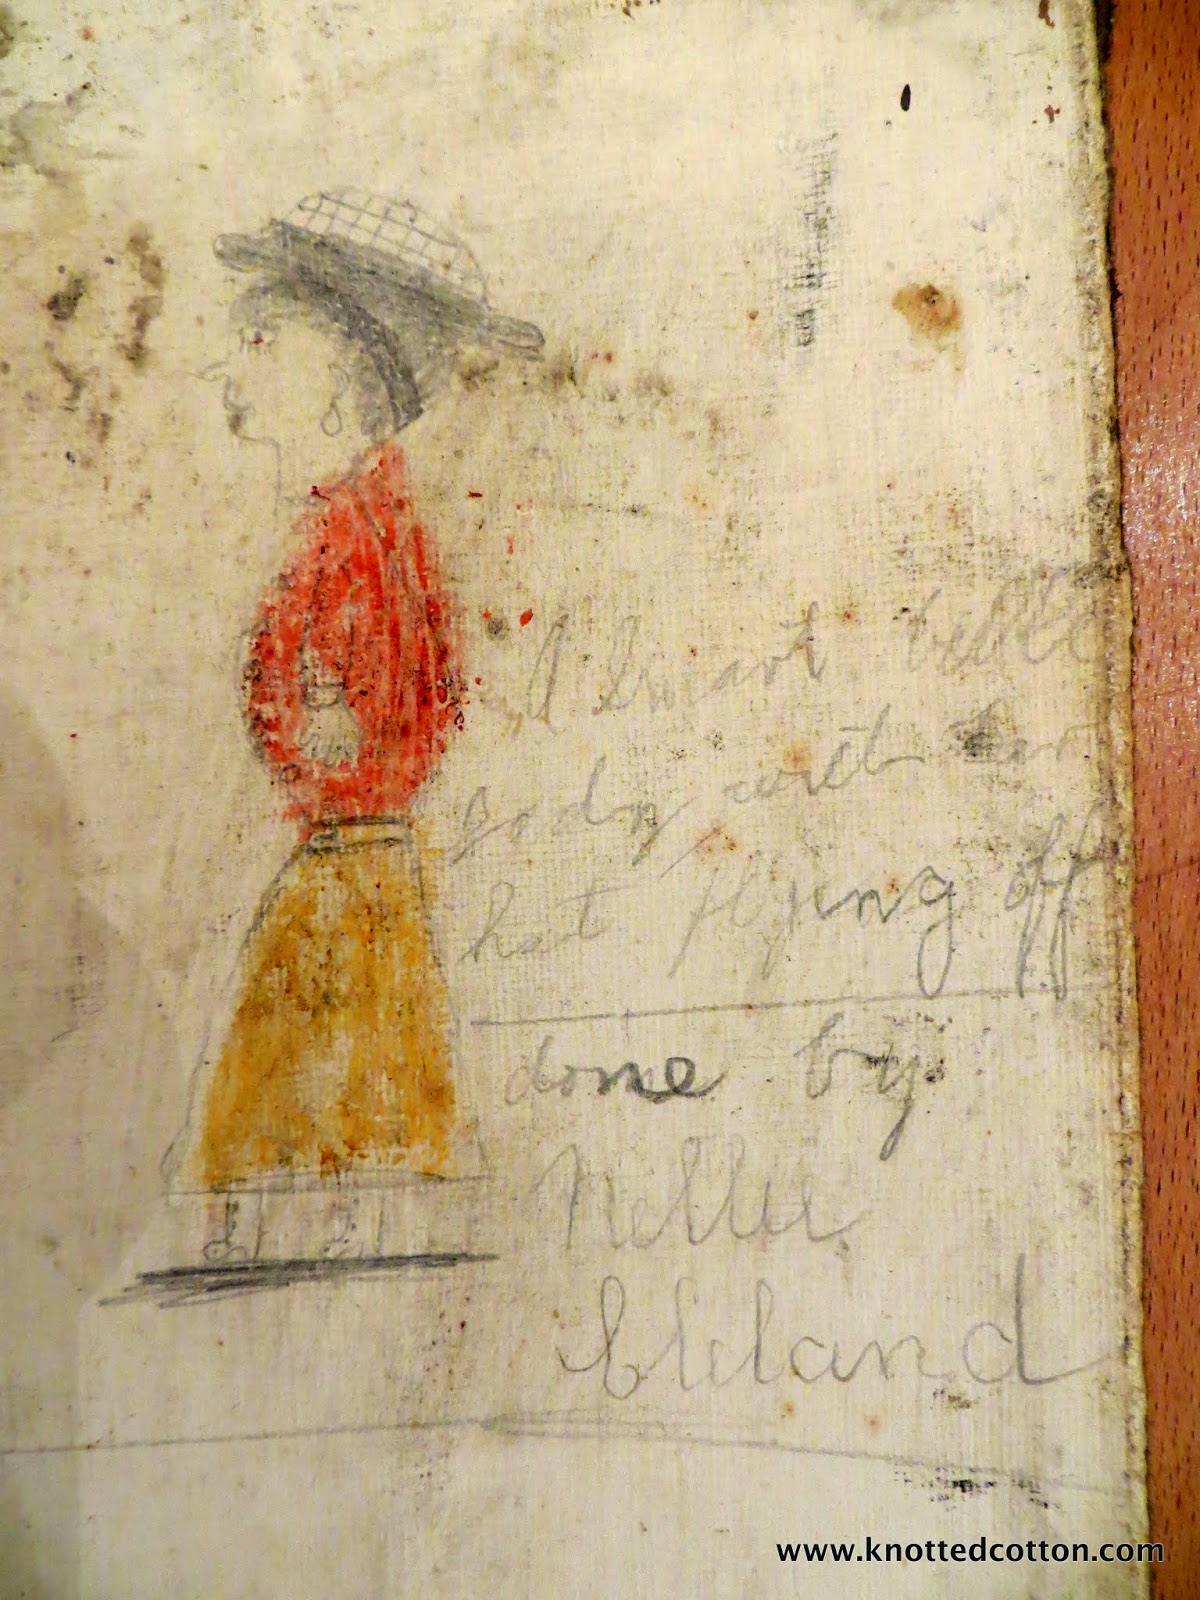 A Smart
body with her
hat flying off
done by
Nellie
Cleland
www.knottedcotton.com